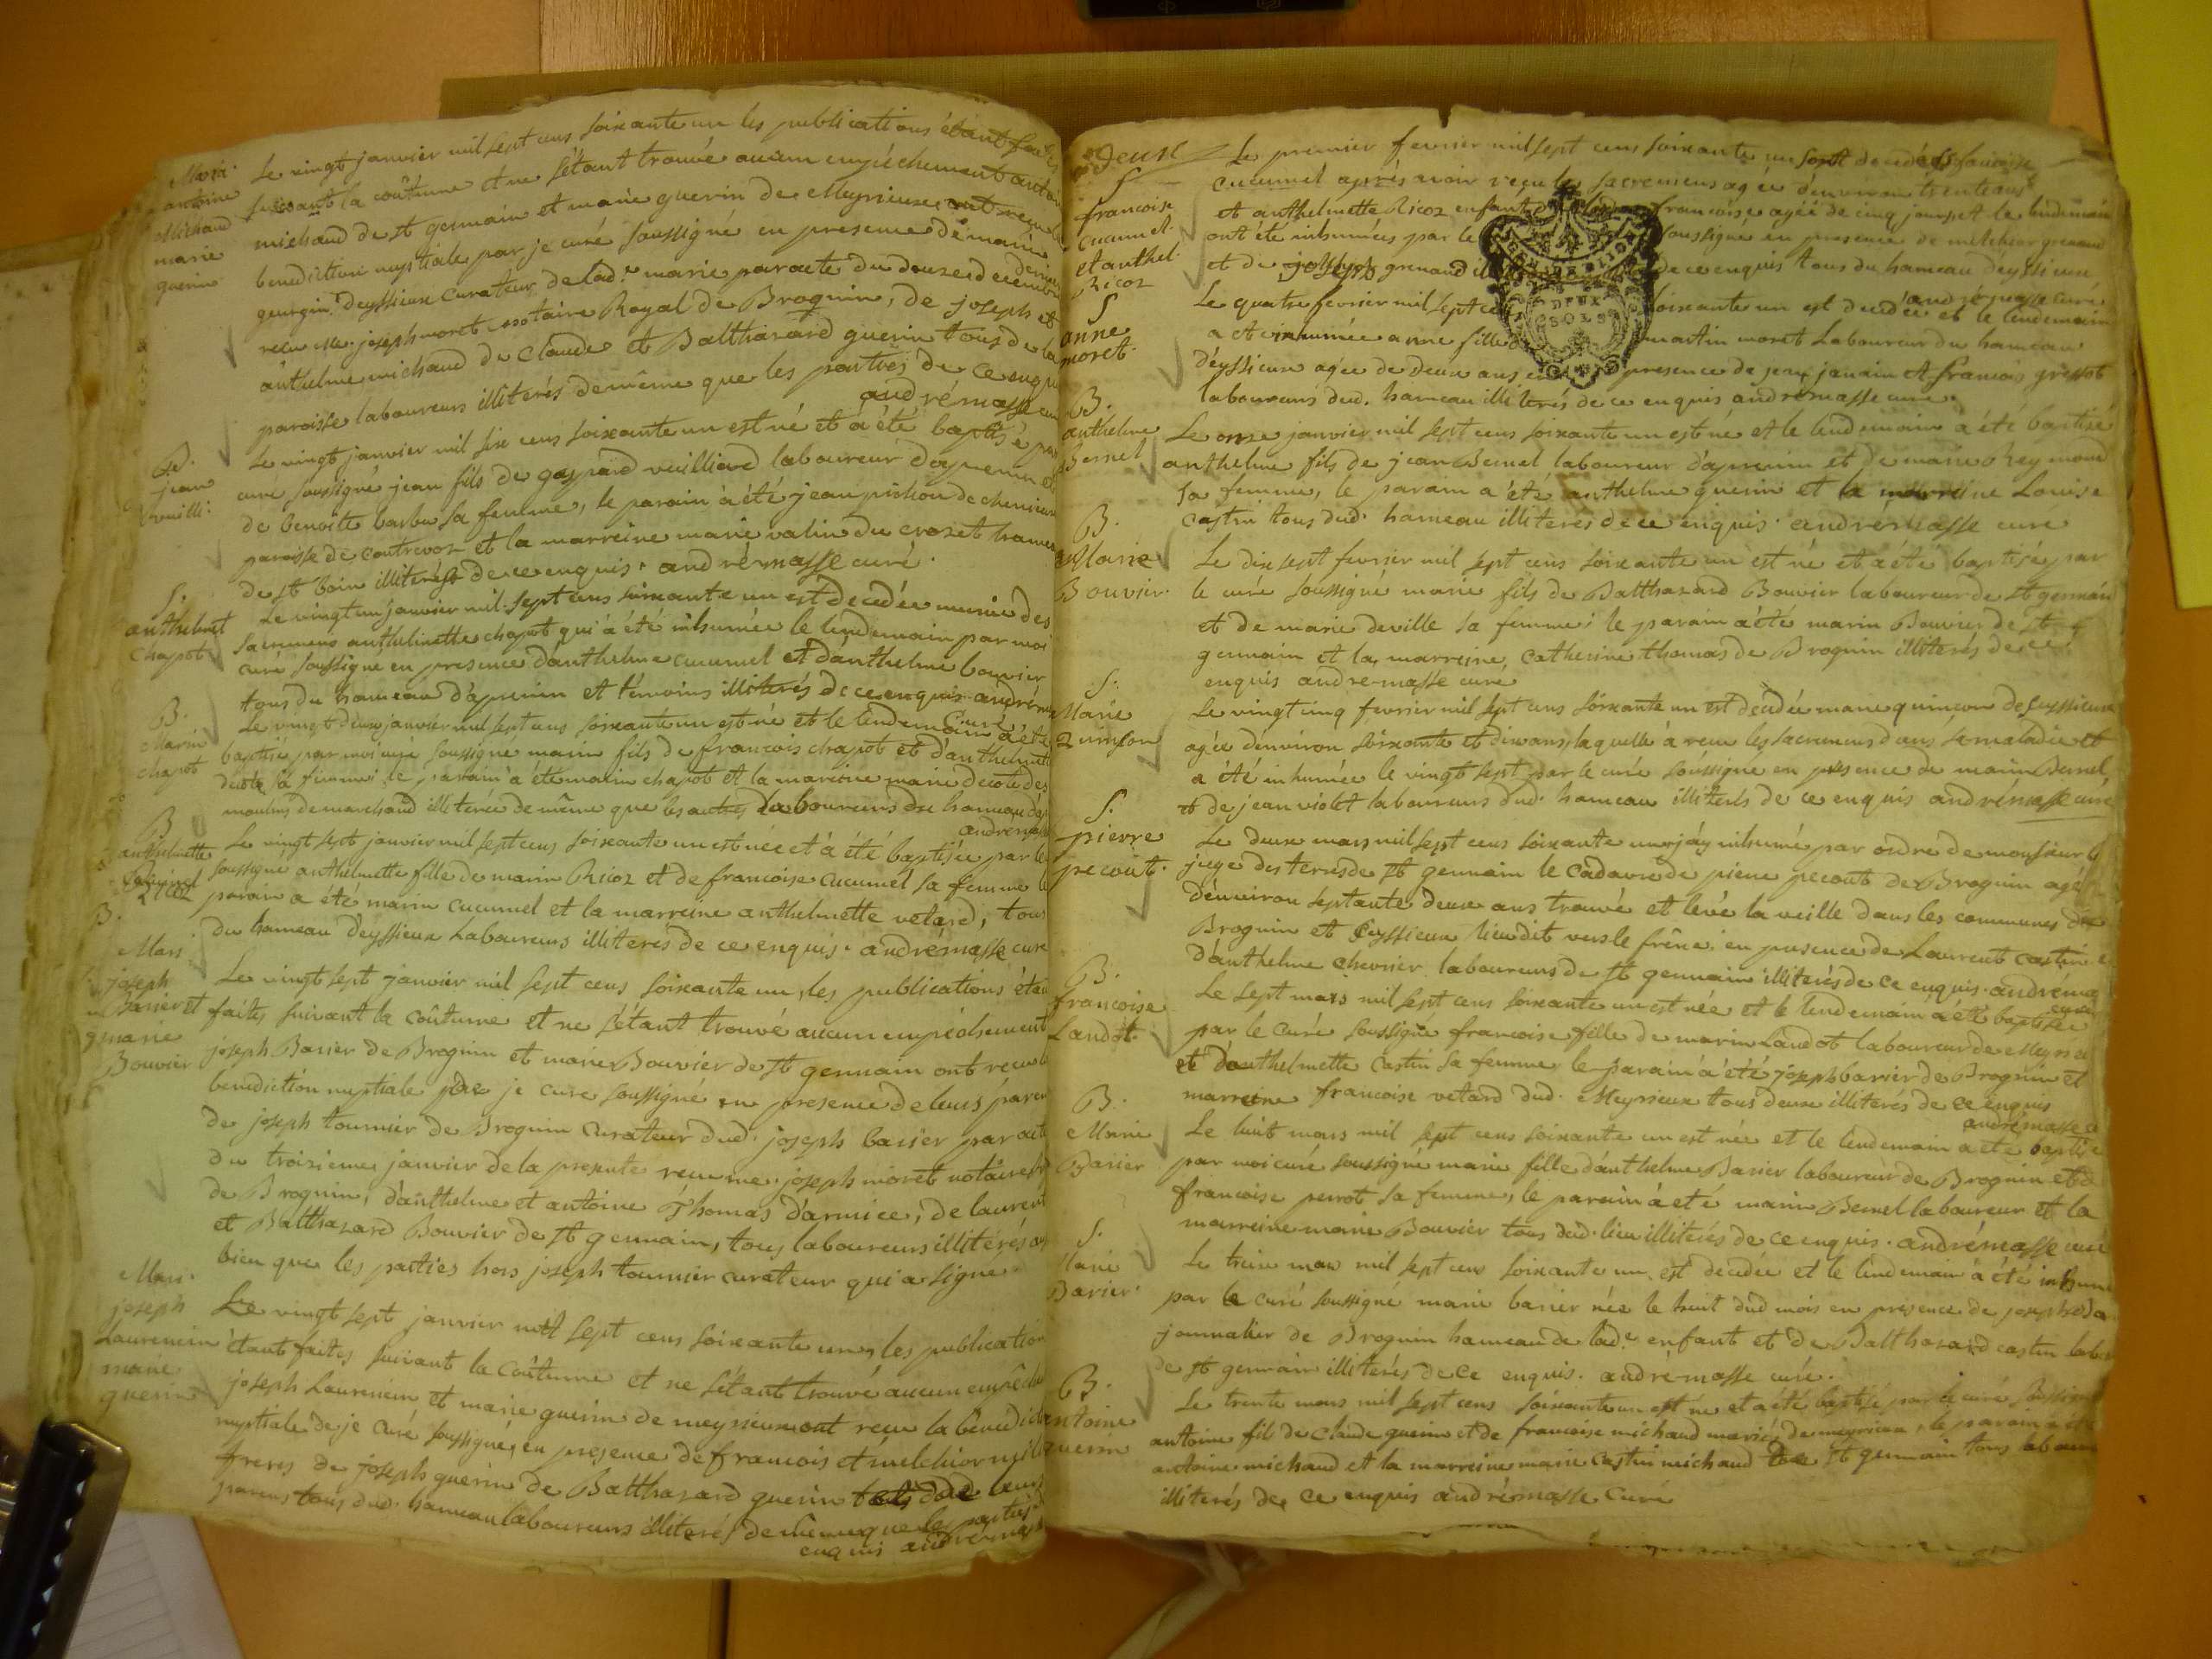 Mari.
antoine
Michaud
marie
guerin
Le vingt janvier mil sept cens soixante un les publications étant faites
suivant la coûtume et ne s'étant trouvé aucun empéchement antoine
michaud de st germain et marie guerin de Meyrieux ont reçu la
benediction nuptiale par je curé soussigné en presence de marin
georgin d'eyssieux curateur de lad.e marie par acte du douze decembre dernier
reçu me. joseph moret notaire Royal de Brognin, de joseph et
anthelme michaud de Claude et Balthazard guerin tous de la
paroisse laboureurs illiterés de même que les parties de ce enquis
andrémasse curé
B.
jean
vuilli:
Le vingt janvier mil six cens soixante un est né et a été baptisé par
curé soussigné jean fils de gaspard vuilliod laboureur d'apremin et
de benoite barbu sa femme, le parain a été jean pichon de chemieux
paroisse de contrevoz et la marreine marie valin du crozet hameau
de st boin illiterés de ce enquis. andrémasse curé.
S.
anthelmet
Chapot
Le vingt un janvier mil sept cens soixante un est decedée munie des
sacremens anthelmette chapot qui a été inhumée le lendemain par moi
curé soussigné en presence d'anthelme cucumel et d'anthelme bouvier
tous du hameau d'apremin et témoins illiterés de ce enquis andrémasse
curé
B.
Marin
chapot
Le vingt deux janvier mil sept cens soixante un est né et le lendemain a été
baptisé par moi curé soussigné marin fils de francois chapot et d'anthelmette
sa femme le parain a été marin chapot et la mareine marie
moulin de marchand illiterée de même que les autres laboureurs du hameau
andrémasse
B
anthelmette
Ricoz
Le vingt sept janvier mil sept cens soixante un est née et a été baptisée par le
soussigné anthelmette fille de marin Ricoz et de francoise cucumel sa femme le
parain a été marin cucumel et la marreine anthelmette vetard, tous
du hameau d'eyssieux Laboureurs illiterés de ce enquis. andrémasse curé
B.
Mari
joseph
Barier et
marie
Bouvier
Le vingt sept janvier mil sept cens soixante un, les publications étant
faites suivant la coûtume et ne s'étant trouvé aucun empéchement
joseph Barier de Brognin et marie Bouvier de st germain ont reçu la
benediction nuptiale par je curé soussigné en presence de leurs parens
de joseph tournier de Brognin curateur dud. joseph barier par acte
du troisieme janvier de la presente reçu me. joseph moret notaire
de Brognin, d'anthelme et antoine Thomas d'armice, de laurent
et Balthazard Bouvier de st germain, tous laboureurs illiterés aussi
bien que les parties hors joseph tournier curateur qui a signé
Mari.
joseph
Laurencin
marie
guerin
Le vingt sept janvier mil sept cens soixante un, les publications
étant faites suivant la coûtume et ne s'étant trouvé aucun empêchement
joseph Laurencin et marie guerin de meyrieux ont reçu la bénediction
nuptiale de je curé soussigné, en presence de francois et melchior
freres de joseph guerin de Balthazard guerin leurs
parens tous dud. hameau laboureurs illiterés de même que les parties
enquis andrémasse
Deuxe
S
francoise
cucumel
et anthel.
Ricoz
Le premier fevrier mil sept cens soixante un sont decedées francoise
cucumel aprés avoir reçu les sacremens agée d'environ trente ans
et anthelmette Ricoz enfant francoise agée de cinq jours et le lendemain
ont été inhumées par le soussigné en presence de melchior grenaud
et de joseph grenaud de ce enquis tous du hameau d'eyssieux
andrémasse curé
DEUX
SOLS
S
anne
moret.
Le quatre fevrier mil sept cens soixante un est decedée et le lendemain
a été inhumée anne fille martin moret Laboureur du hameau
d'eyssieux agée de deux ans en presence de jean janain et francois gressot
laboureurs dud. hameau illiterés de ce enquis andrémasse curé.
B.
anthelme
Bernel
Le onze janvier mil sept cens soixante un est né et le lendemain a été baptisé
anthelme fils de jean Bernel laboureur d'apremin et de marie Reymond
sa femme, le parain a été anthelme guerin et la marreine Louise
Castin tous dud. hameau illiterés de ce enquis. andrémasse curé
B.
Marie
Bouvier.
Le dix sept fevrier mil sept cens soixante un est né et a été baptisé par
le curé soussigné marie fils de Balthazard Bouvier laboureur de st germain
et de marie deville sa femme; le parain a été marin Bouvier de st
germain et la marreine, catherine thomas de Brognin illiterés de ce
enquis andremasse curé
S.
Marie
Quinson
Le vingt cinq fevrier mil sept cens soixante un est decedée marie quinson de Seyssieux
agée d'environ soixante et dix ans, laquelle a reçu les sacremens dans sa maladie et
a été inhumée le vingt sept par le curé soussigné en presence de marin Bernel,
et de jean violet laboureurs dud. hameau illiterés de ce enquis andrémasse curé
S.
pierre
pecout.
Le deux mars mil sept cens soixante un j'ay inhumé par ordre de monsieur le
juge des terres de st germain le cadavre de pierre pecout de Brognin agé
d'environ septante deux ans trouvé et levé la veille dans les communes de
Brognin et Ceyssieux lieu dit vers le frêne. en presence de Laurent castin
d'anthelme chevrier laboureurs de st germain illiterés de ce enquis. andrema
curé
B.
francoise
Landot.
Le sept mars mil sept cens soixante un est née et le lendemain a été baptisée
par le curé soussigné francoise fille de marin Landot laboureur de Meyrieu
et d'anthelmette Castin sa femme le parain a été joseph barier de Brognin et
marreine francoise vetard dud. Meyrieux tous deux illiterés de ce enquis
andrémasse
B.
Marie
Barier
Le huit mars mil sept cens soixante un est née et le lendemain a été baptisée
par moi curé soussigné marie fille d'anthelme Barier laboureur de Brognin et de
francoise perrot sa femme, le parain a été marin Bernel laboureur et la
marreine marie Bouvier tous dud. lieu illiterés de ce enquis. andrémasse curé
S.
Marie
Barier.
Le treize mars mil sept cens soixante un est decedée et le lendemain a été inhum
par le curé soussigné marie barier née le huit dud mois en presence de joseph Ba
journalier de Brognin hameau de lad.e enfant et de Balthazard castin labo
de st germain illiterés de ce enquis. andrémasse curé.
B.
antoine
guerin
Le trente mars mil sept cens soixante un est né et a été baptisé par le curé soussigné
antoine fils de Claude guerin et de francoise michaud mariés de meyrieux, le parain a été
antoine michaud et la marreine marie Castin michaud de st germain tous labour
illiterés de ce enquis andrémasse Curé